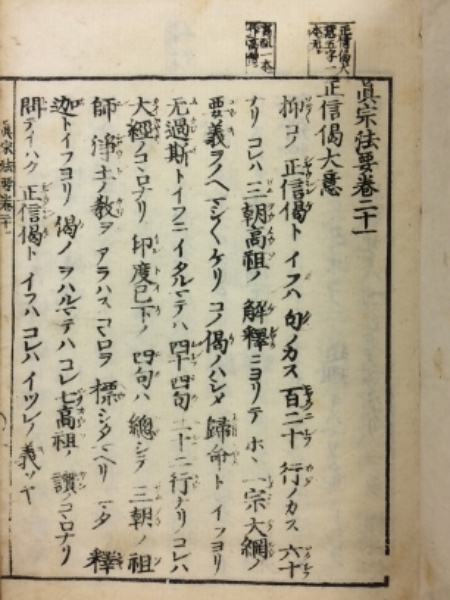 眞宗法要卷二十一
正信偈大意
抑コノ正信偈トイフハ句ノカス百二十行ノカス六十
ナリコレハ三朝高祖ノ解釋ニヨリテホヽ一宗大綱ノ
要義ヲノヘマシ〱ケリコノ偈ノハシメ歸命トイフヨリ
无過斯トイフニイタルマテハ四十四句二十二行ナリコレハ
大經ノコヽロナリ印度已下ノ四句ハ總シテ三朝ノ祖
師淨土ノ教ヲアラハスコヽロヲ標シタマヘリマタ釋
迦トイフヨリ偈ノヲハルマテハコレ七高祖ノ讃ノコヽロナリ
問テイハク正信偈トイフハコレハイツレノ義ソヤ
眞宗法要卷二十一